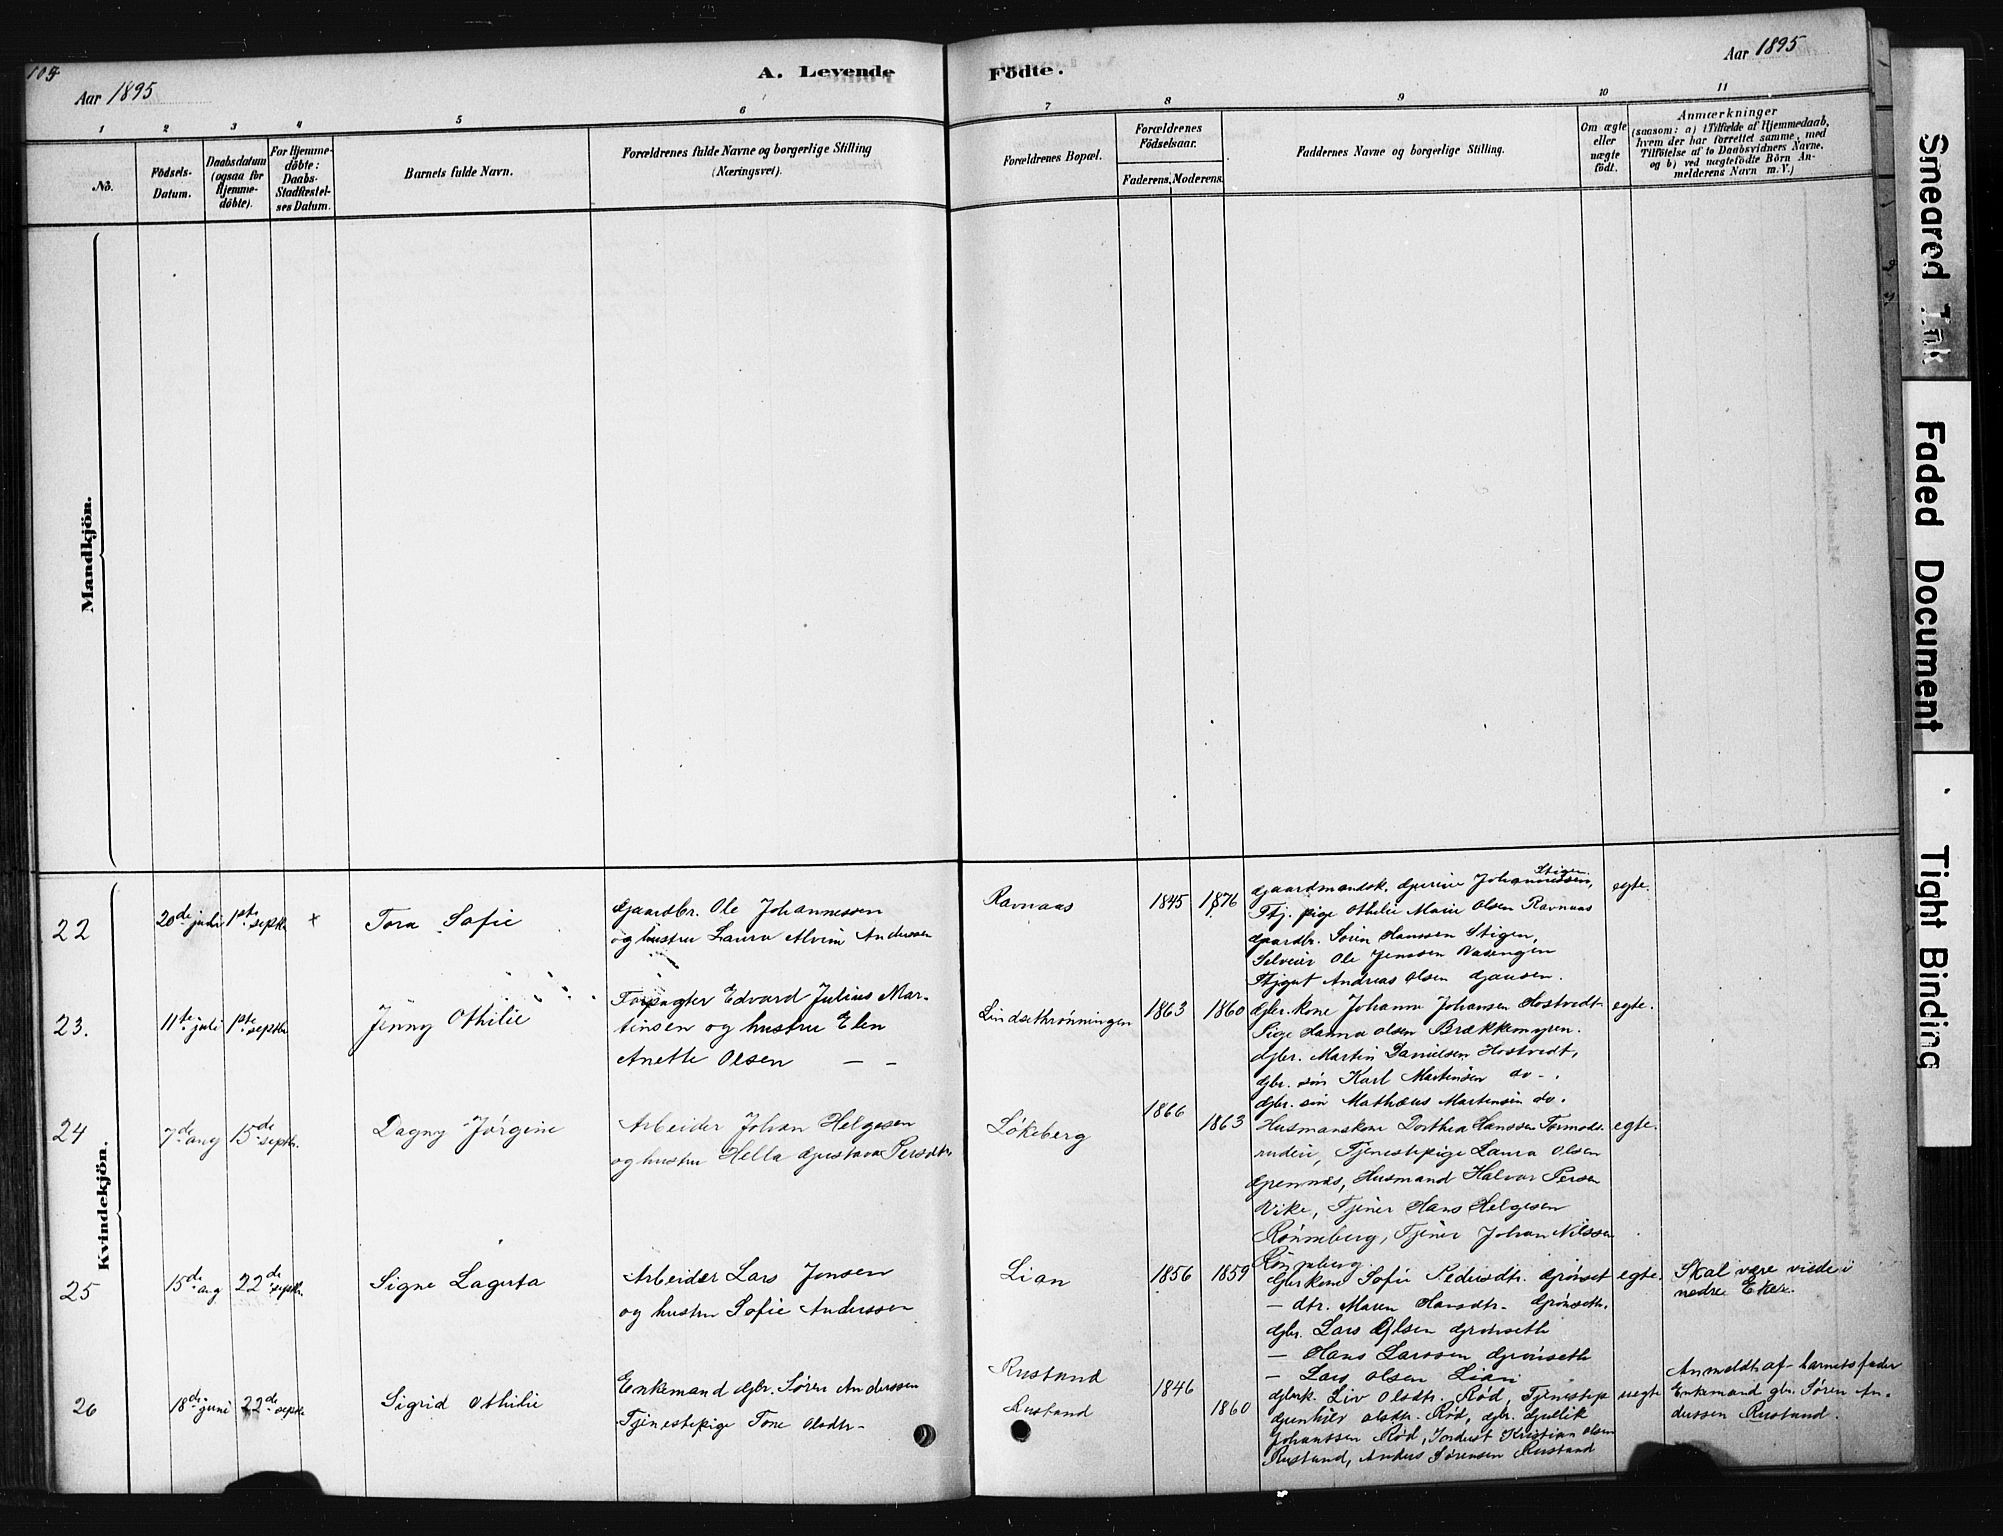 105
Aar 1895
A. Levende
Födte.
Aar 1895
1
2
3
4
5
6
7
8
9
10
11
No.
Födsels-
Datum.
Daabsdatum
(ogsaa for
Hjemme-
döbte).
For Hjemme-
döbte:
Daabs-
Stadfæstel-
ses Datum.
Barnets fulde Navn.
Forældrenes fulde Navne og borgerlige Stilling
(Næringsvei).
Forældrenes Bopæl.
Forældrenes
Födselsaar.
Faderens.
Moderens.
Faddernes Navne og borgerlige Stilling.
Om ægte
eller
uægte
født.
Anmærkninger
(saasom: a) i Tilfælde af Hjemmedaab,
hvem der har forrettet samme, med
Tilföielse af to Daabsvidners Navne,
og b) ved uægtefödte Börn An-
melderens Navn m. V.)
Mandkjön.
Kvindekjön.
22
20de juli
1ste septbr
+
Tora Sofie
Gaardbr. Ole Johannessen
og hustru Laura Alvine Anderssen
Ravnaas
1845
1876
Gaardmandsk. Gurine Johannessen, Stigen
Tj. pige Othilie Marie Olsen Ravnaas
Gaardbr. Søren Hanssen Stigen,
Selveier Ole Jenssen
Tjgut Andreas Olsen
egte.
23.
11te juli
1ste septbr
Jenny Othilie
Forpagter Edvard Julius Mar-
tinsen og hustru Elen
Anette Olsen — —
Lindsethrønningen
1863
1860
Gbr. kone Johanne Johansen Hostvedt
Pige Hanna Olsen Brækkemyren.
Gbr. Martin Danielsen Hostvedt,
Gbr. søn Karl Martensen do -.
Gbr. søn Mathæus Martensen do.
egte.
24
7de aug
15de septbr.
Dagny Jørgine
Arbeider Johan Helgesen
og hustru Hella Gustava Persdtr.
Løkeberg
1866
1863
Husmanskone Dorthea Hanssen Tormods-
ruden, Tjenestepige Laura Olsen
Grennæs, Husmand Halvor Persen
Vike, Tjener Hans Helgesen
Rønneberg, Tjener Johan Nilssen
Rønneberg.
egte.
25
15de aug
22de septbr.
Signe Lagerta
Arbeider Lars Jensen
og hustru Sofie Anderssen
Lian
1856
1859
Gbr kone Sofie Pedersdtr. Grønset
— dtr. Maren Hansdtr. Grønseth.
Gbr. Lars Olsen Grønseth
— Hans Larssen Grønseth
— Lars Olsen Lian
egte.
Skal være viede i
nedre Eker.
26
18de juni
22de septbr
Sigrid Othilie
Enkemand Gbr. Søren Anderssen
Tjenestepige Tone Olsdtr-
Rustand
Rustand
1846
1860
Gbrk. Liv Olsdtr. Rød, Tjenestep
Gunhild Olsdtr. Rød, Gbr. Gullik
Johanssen Rød, Inderst Kristian Olsen
Rustand, Anders Sørensen Rustand
uegte
Anmeldt af barnets fader
Enkemand gbr. Søren An-
dersen Rustand.
Smeared Ink
Faded Document
Tight Binding